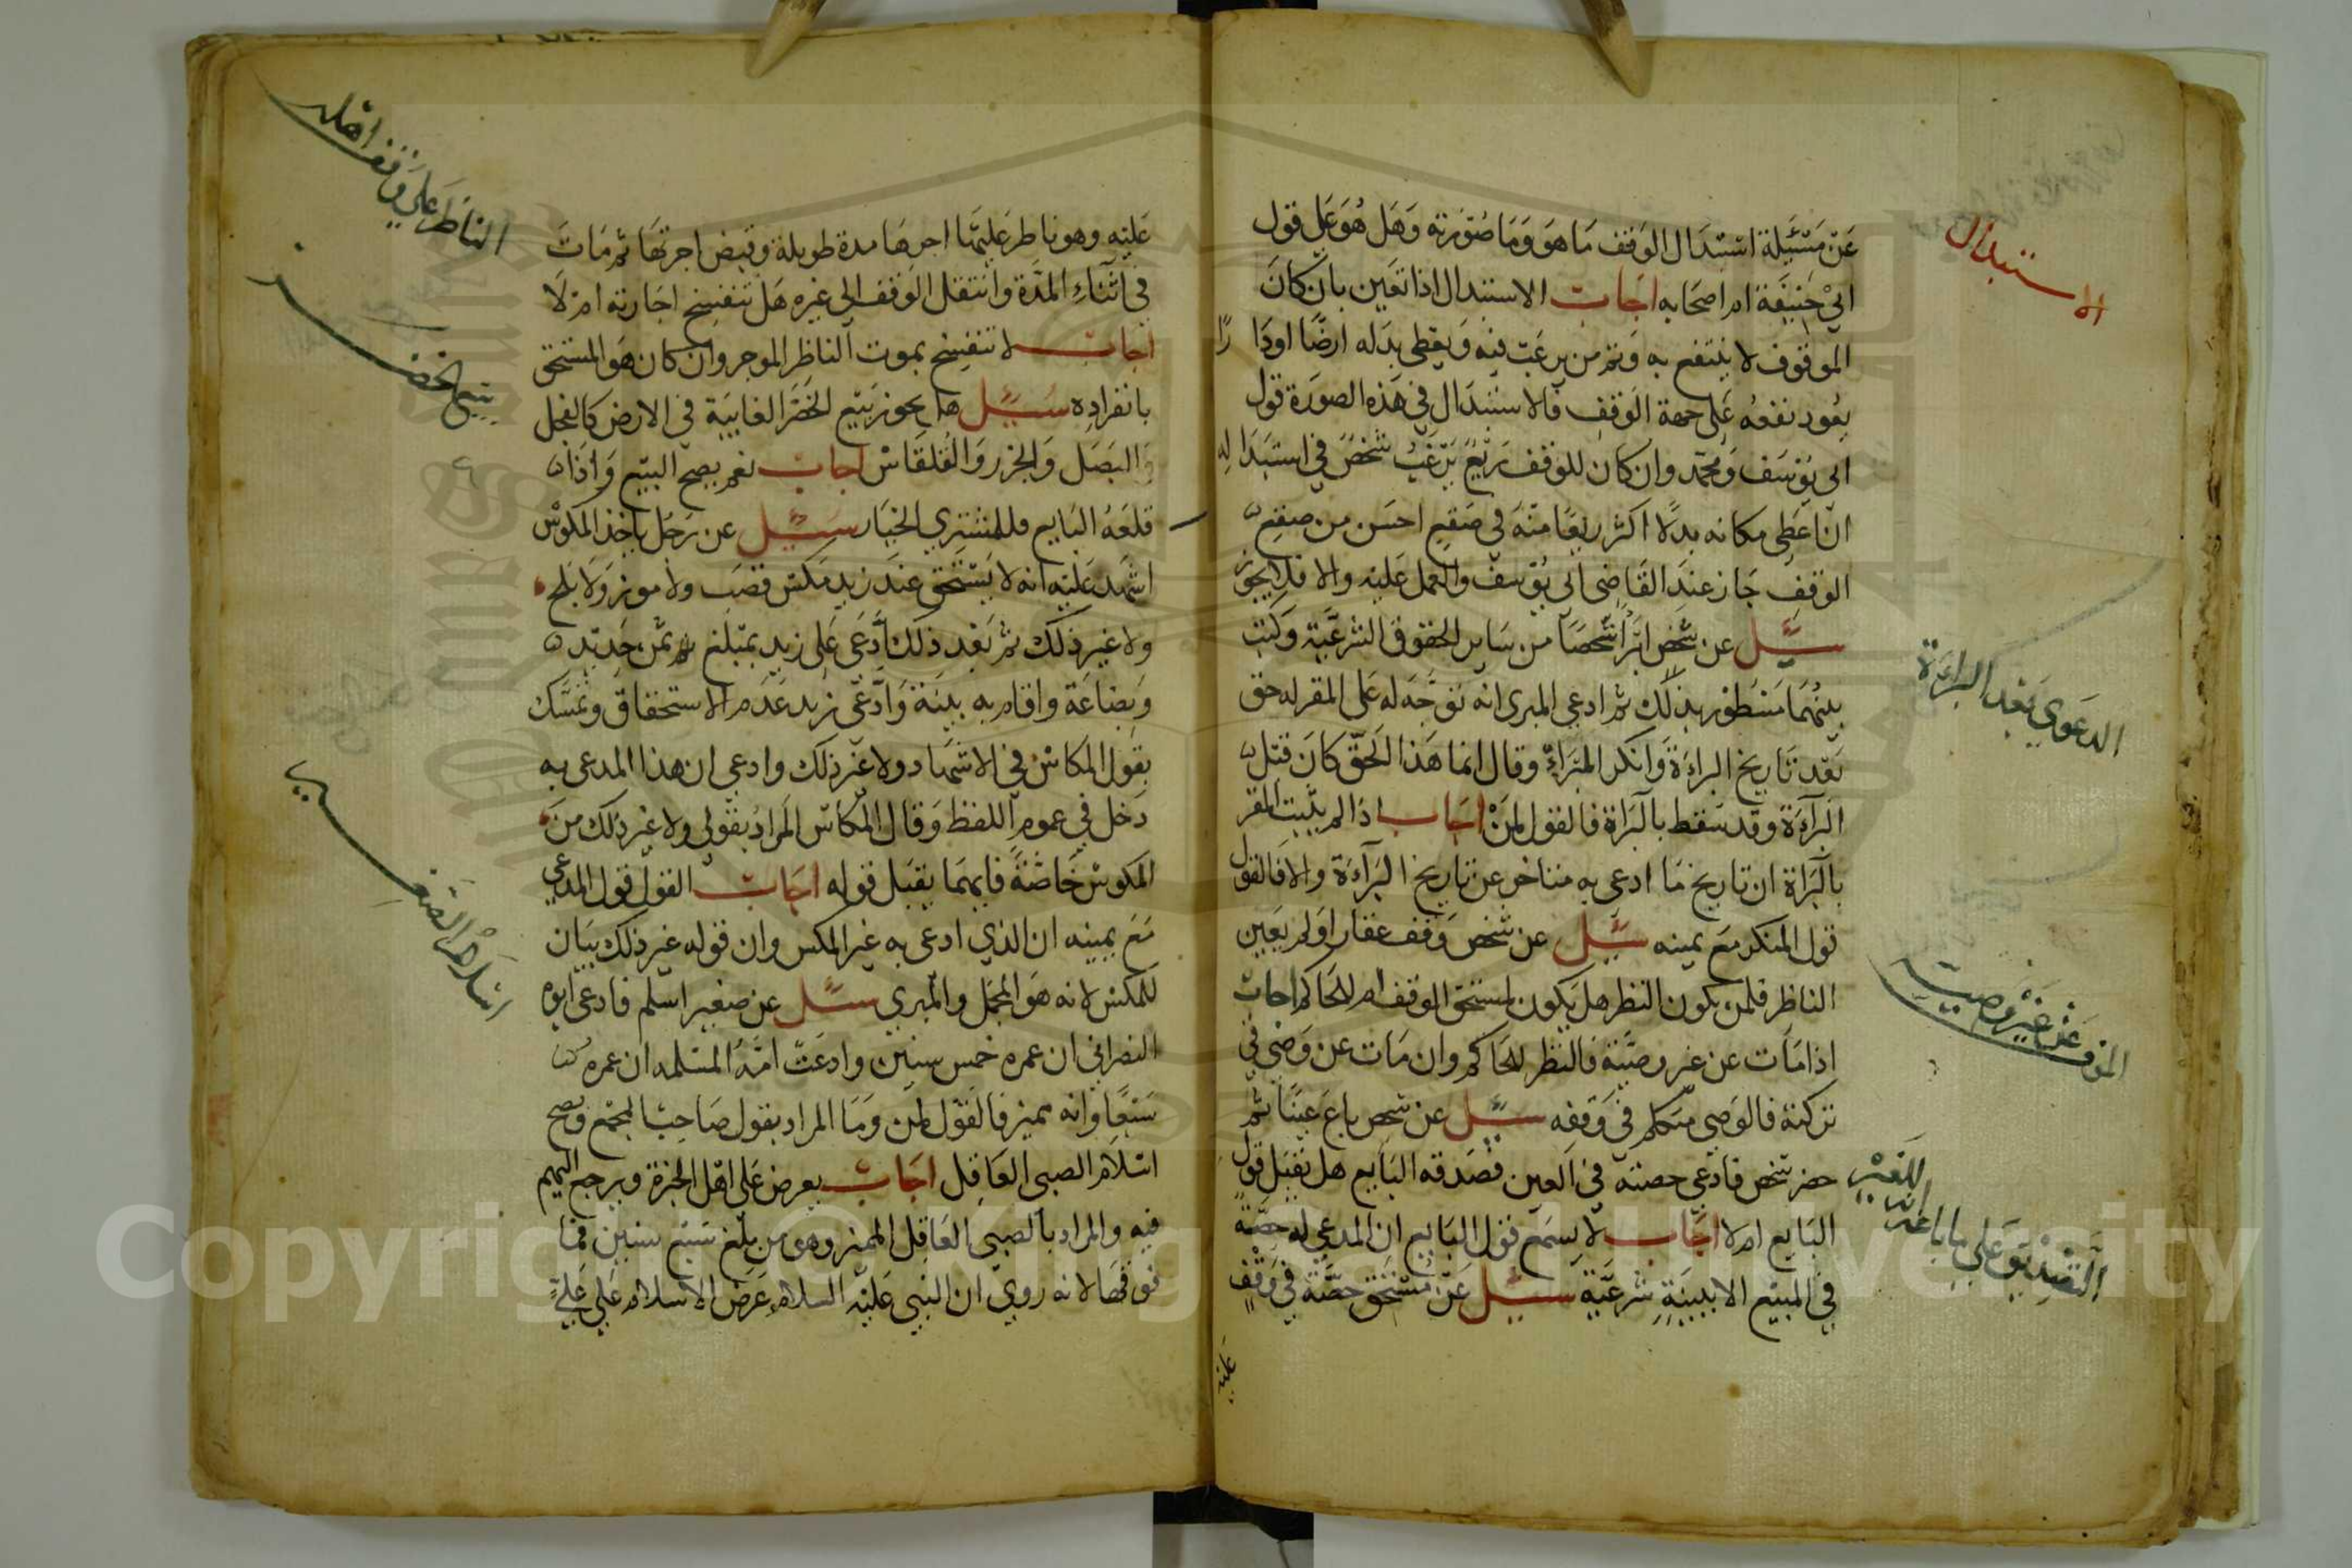 عن مسئلة استبدال الوقف ما هو وما صورته وهل هو على قول
ابي حنيفة ام اصحابه اجاب الاستبدال اذا تعين بان كان
الموقوف لا ينتفع به وثم من يرغب فيه ويعطي بدله ارضا اودارًا
يعود نفعه على جهة الوقف فالاستبدال في هذه الصورة قول
ابي يوسف ومحمد وان كان للوقف ريع يرغب شخص في استبداله
ان اعطى مكانه بدلا اكثر ريعا منه في صقع احسن من صقع
الوقف جاز عند القاضي ابي يوسف والعمل عليه والا فلا يجوز
سئل عن شخص ابرا شخصا من ساير الحقوق الشرعية وكتب
بينهما مسطور بذلك ثم ادعى المبري انه توجه له على المقر له حق
بعد تاريخ البراءة وانكر المبراء وقال انما هذا الحق كان قبل
البراءة وقد سقط بالبراة فالقول لمن اجاب اذا لم يثبت المقر
بالبراة ان تاريخ ما ادعى به متاخر عن تاريخ البراءة والا فالقول
قول المنكر مع يمينه سئل عن شخص وقف عقارا ولم يعين
الناظر فلمن يكون النظر هل يكون لمستحق الوقف ام للحاكم اجاب
اذا مات عن غير وصية فالنظر للحاكم وان مات عن وصي في
تركته فالوصي متكلم في وقفه سئل عن شخص باع عينا ثم
حضر شخص فادعى حصته في العين فصدقه البايع هل يقبل قول
البايع ام لا اجاب لا يسمع قول البايع ان المدعي له حصة
في المبيع الا ببينة شرعية سئل عن مستحق حصة في وقف
عليه
الاستبدال
الدعوى بعد البراءة
الموت عن غير وصيت
التصديق على ما باعه انه للغير
عليه وهو ناظر عليها اجرها مدة طويلة وقبض اجرتها ثم مات
في اثناء المدة وانتقل الوقف الى غيره هل تنفسخ اجارته ام لا
اجاب لا تنفسخ بموت الناظر الموجر وان كان هو المستحق
بانفراده سئل هل يجوز بيع الخضر الغايبة في الارض كالفجل
والبصل والجزر والقلقاس اجاب نعم يصح البيع واذا
قلعه البايع فللمشتري الخيار سئل عن رجل ياخذ المكوس
اشهد عليه انه لا يستحق عند زيد مكس قصب ولا موز ولا بلح
ولا غير ذلك ثم بعد ذلك ادعى على زيد بمبلغ ثمن حديد
وبضاعة واقام به بينة وادعى زيد عدم الاستحقاق وتمسك
بقول المكاس في الاشهاد ولا غير ذلك وادعى ان هذا المدعى به
دخل في عموم اللفظ وقال المكاس المراد بقولي ولا غير ذلك من
المكوس خاصة فايهما يقبل قوله اجاب القول قول المدعي
مع يمينه ان الذي ادعى به غير المكس وان قوله غير ذلك بيان
للمكس لانه هو المجمل والمبري سئل عن صغير اسلم فادعى ابوه
النصراني ان عمره خمس سنين وادعت امه المسلمه ان عمره
سبعا وانه مميز فالقول لمن وما المراد بقول صاحب المجمع ويصح
اسلام الصبي العاقل اجاب يعرض على اهل الخبرة ويرجع اليهم
فيه والمراد بالصبي العاقل المميز وهو من بلغ سبع سنين فما
فوقها لانه روي ان النبي عليه السلام عرض الاسلام على علي
الناظر على وقف اهله
بيع الخضر
اسلام الصغير
Copyright © King Saud University